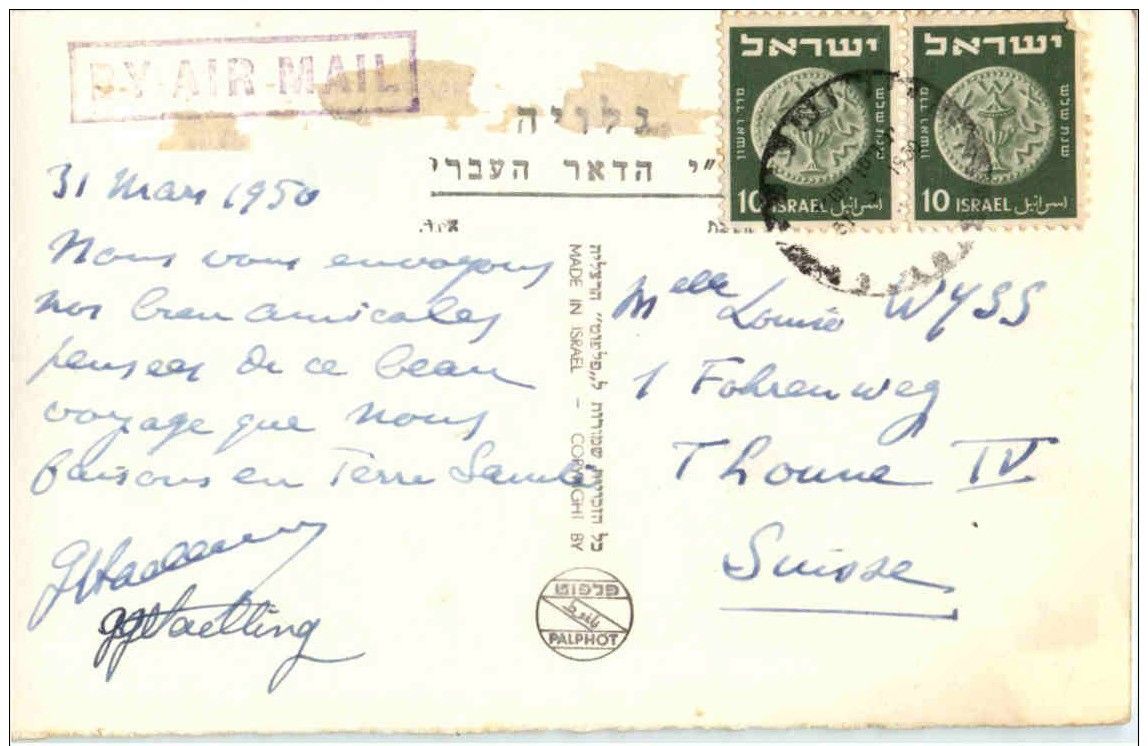 BY AIR MAIL
גלויה
"י הדאר העברי
31 Mars 1950
Nous vous envoyons
nos bien amicales
pensées de ce beau
voyage que nous
faisons en Terre Sainte
ישראל
10 ISRAEL اسرائيل
ישראל
10 ISRAEL اسرائيل
Melle Louise WYSS
1 Fohrenweg
Thoune IV
Suisse
כל הזכויות שמורות ל„פלפוט" הרצליה
MADE IN ISRAEL - COPYRIGHT BY
פלפוט
PALPHOT